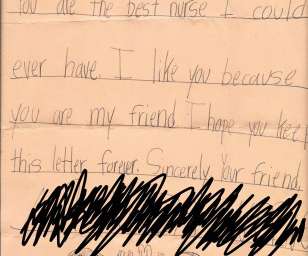 You are the best nurse I could
ever have. I like you because
you are my friend I hope you keep
this letter forever. Sincerely Your friend,